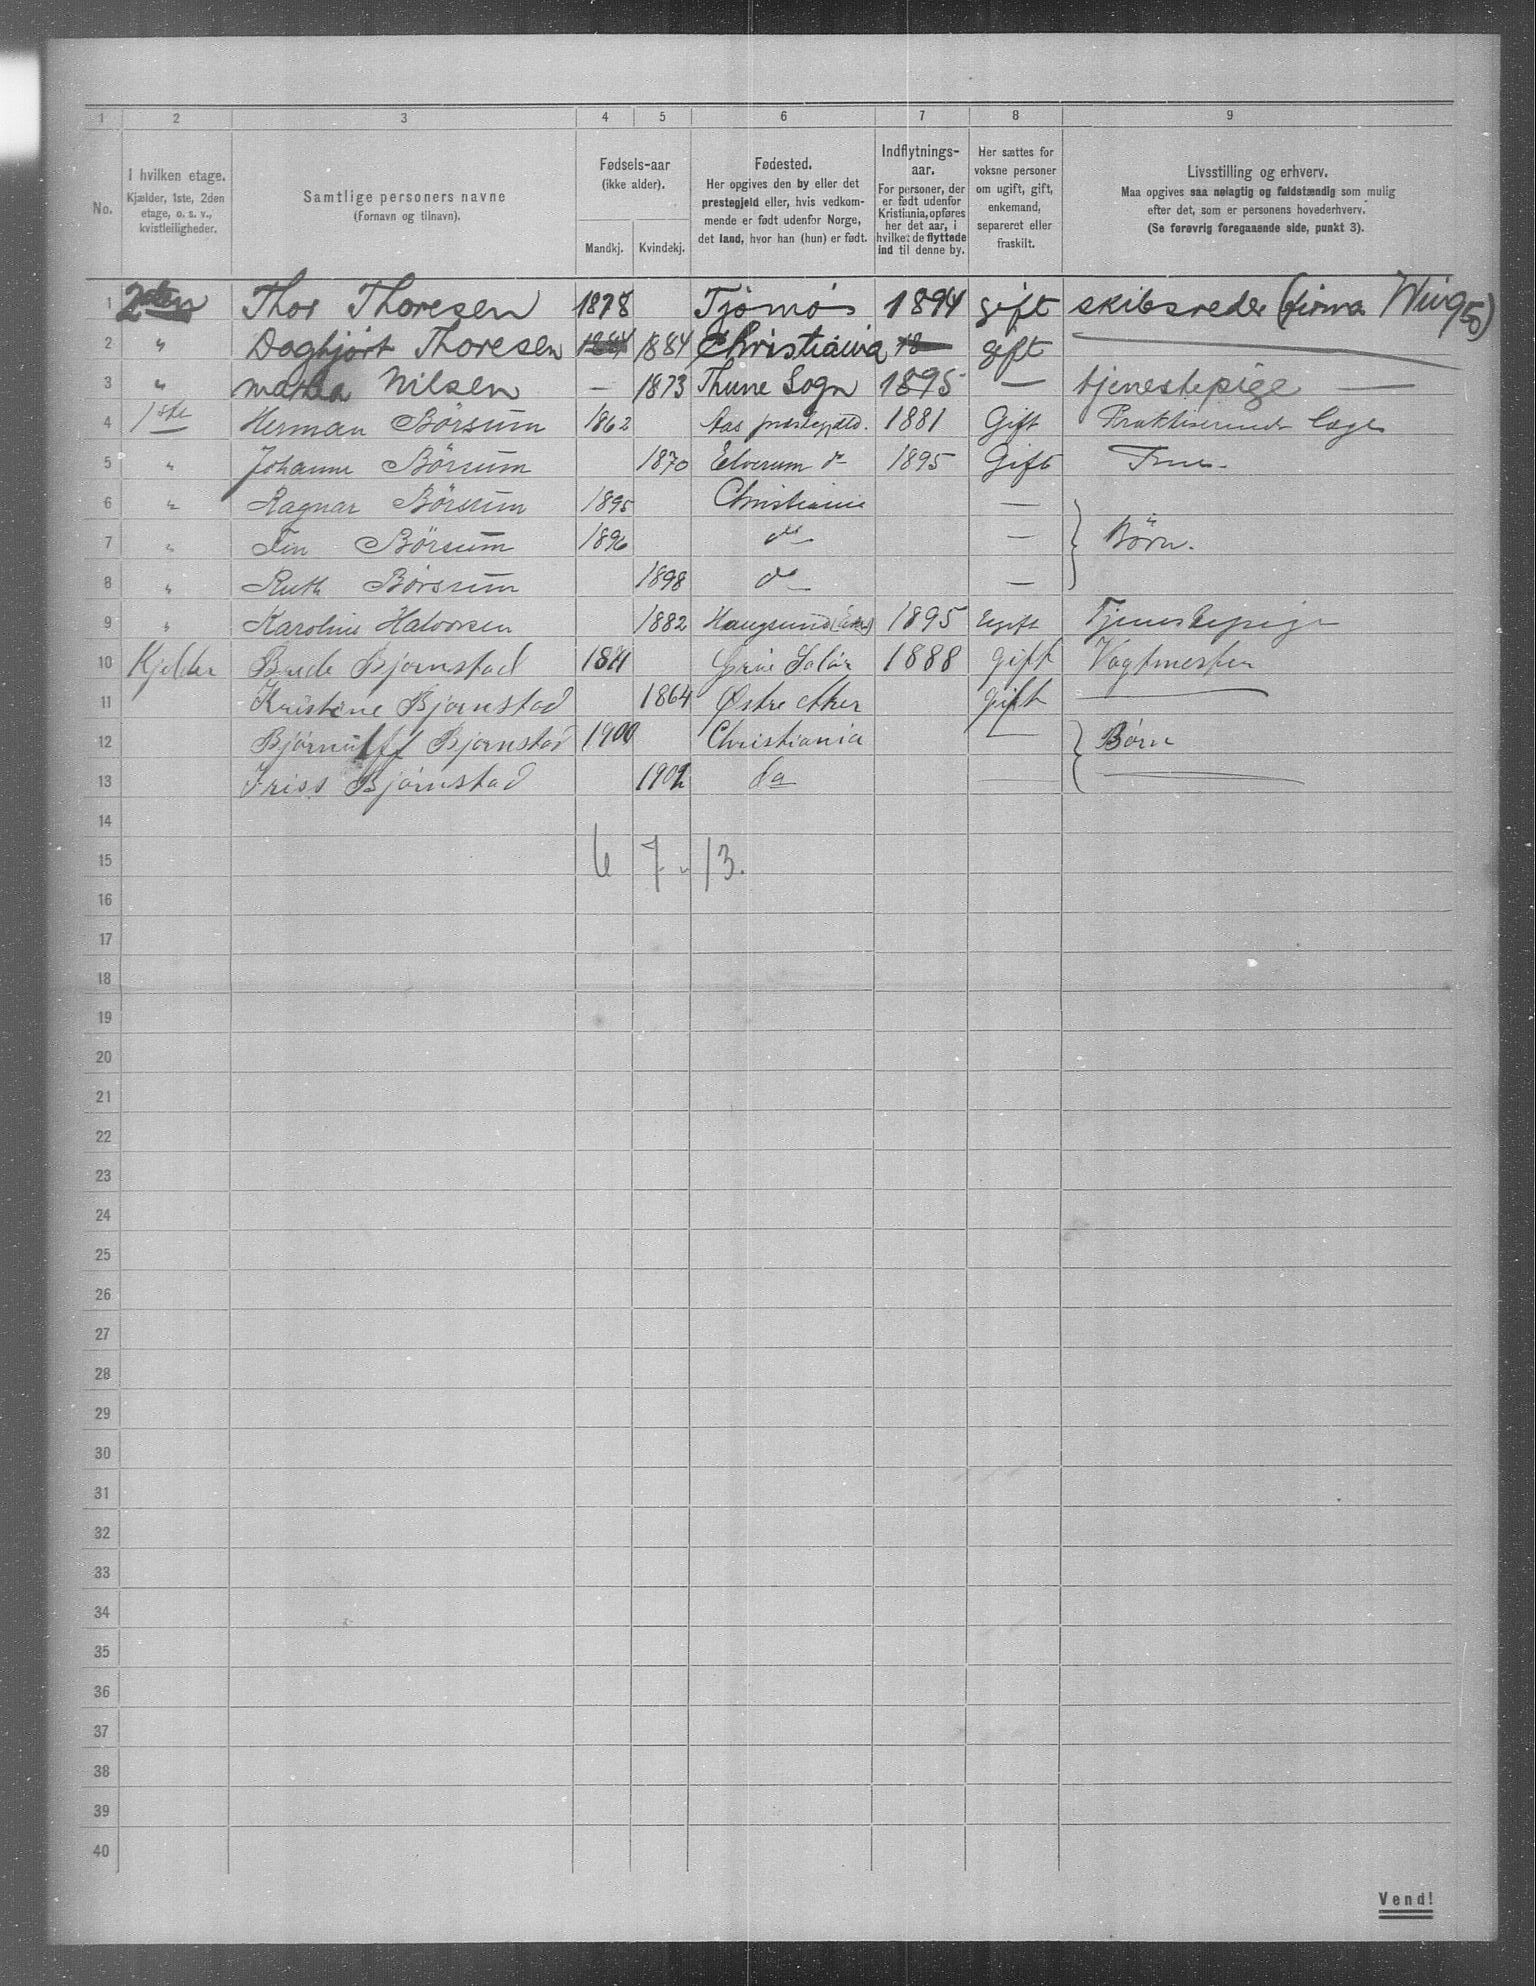 1 2 3 4 5 6 7 8 9
No.
I hvilken etage.
Kjælder, 1ste, 2den
etage, o. s. v.,
kvistleiligheder.
Samtlige personers navne
(Fornavn og tilnavn).
Fødsels-aar
(ikke alder).
Mandkj. Kvindekj.
Fødested.
Her opgives den by eller det
prestegjeld eller, hvis vedkom-
mende er født udenfor Norge,
det land, hvor han (hun) er født.
Indflytnings-
aar.
For personer, der
er født udenfor
Kristiania, opføres
her det aar, i
hvilket de flyttede
ind til denne by.
Her sættes for
voksne personer
om ugift, gift,
enkemand,
separeret eller
fraskilt.
Livsstilling og erhverv.
Maa opgives saa nøiagtig og fuldstændig som mulig
efter det, som er personens hovederhverv.
(Se forøvrig foregaaende side, punkt 3).
1 2den Thor Thoresen 1878 Tjømø 1894 gift skibsreder (firma
2 " Dagbjört Thoresen 1884 1884 Christiania 18 gift
3 " Nilsen — 1873 Thune Sogn 1895 — tjenestepige —
4 1ste Herman Börsum 1862 Aas prestegjeld. 1881 Gift Praktiserende Læge
5 " Johanne Börsum 1870 Elverum do 1895 Gift Frue.
6 " Ragnar Börsum 1895 Christiania —
7 " Fin Börsum 1896 do — Børn.
8 " Ruth Börsum 1898 do —
9 " Karoline Halvorsen 1882 Haugsund (Eker) 1895 Ugift Tjenestepige
10 Kjelder Bjørnstad Grue Solør 1888 gift Vagtmester
11 Kristine Bjørnstad 1864 Østre Aker gift
12 Bjørnulff Bjørnstad 1900 Christiania — Børn
13 Iriss Bjørnstad 1902 do —
14
15 6 7 - 13.
16
17
18
19
20
21
22
23
24
25
26
27
28
29
30
31
32
33
34
35
36
37
38
39
40
Vend!